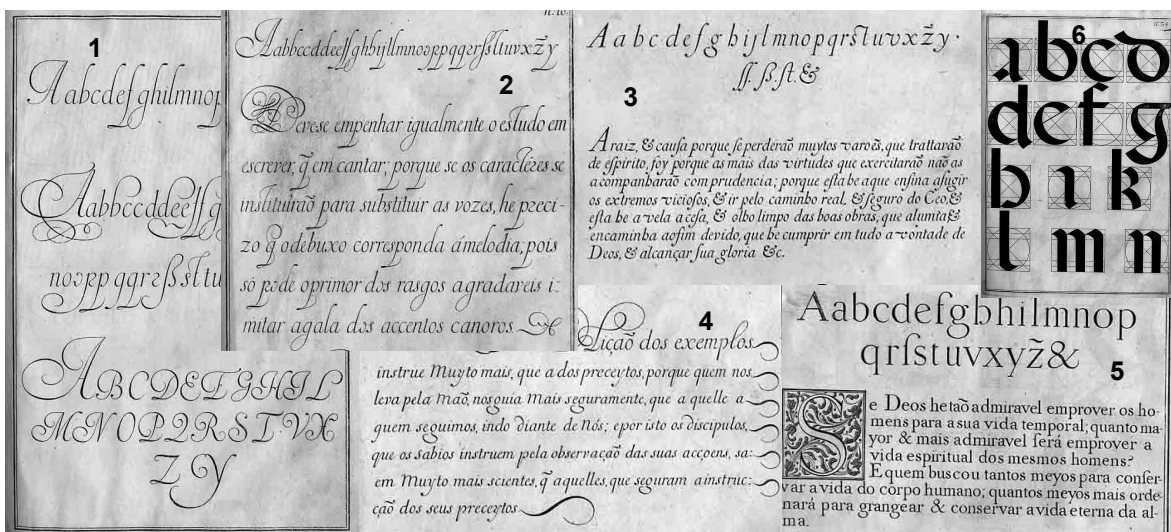 1
Aabcdefghilmnop
Aabbccddeeſſg
noopp qqrrſßsttu
ABCDEFGHIL
MNOPQRSTVX
ZY
2
Aabbccddeeſſghbijllmnooppqqrrſsſtuvxz̃y
Devese empenhar igualmente o estudo em
escrever, q̃ em cantar; porque se os caractéres se
instituiraõ para substituir as vozes, he preci-
zo q̃ odebuxo corresponda ámelodia, pois
só póde oprimor dos rasgos agradaveis i-
mitar agala dos accentos canoros
3
Aabcdefghijlmnopqrstuvxz̃y.
ſſ. ß. ſt. &
A raiz, & cauſa porque ſe perderaõ muytos varoẽs, que trattaraõ
de eſpirito, foy porque as mais das virtudes que exercitaraõ naõ as
acompanharaõ com prudencia; porque eſta he aque enſina afugir
os extremos vicioſos, & ir pelo caminho real, & ſeguro do Ceo, &
eſta he a vela aceſa, & olho limpo das boas obras, que alumia &
encaminha aoſim devido, que he cumprir em tudo a vontade de
Deos, & alcançar ſua gloria &c.
4
Liçaõ dos exemplos
instrue Muyto mais, que a dos preceytos, porque quem nos
leva pela Maõ, nos guia Mais seguramente, que a quelle a-
quem seguimos, indo diante de Nós; e por isto os discipulos,
que os sabios instruem pela observaçaõ das suas acçoens, sa-
em Muyto mais scientes, q̃ aquelles, que seguram a instruc-
çaõ dos seus preceytos
5
Aabcdefgbhilmnop
qrſstuvxyz̃&
Se Deos he taõ admiravel emprover os ho-
mens para a sua vida temporal; quanto ma-
yor & mais admiravel ſerá emprover a
vida espiritual dos mesmos homens?
E quem buscou tantos meyos para conſer-
var a vida do corpo humano; quantos meyos mais orde-
nará para grangear & conservar a vida eterna da al-
ma.
6
abcd
defg
hik
lmn